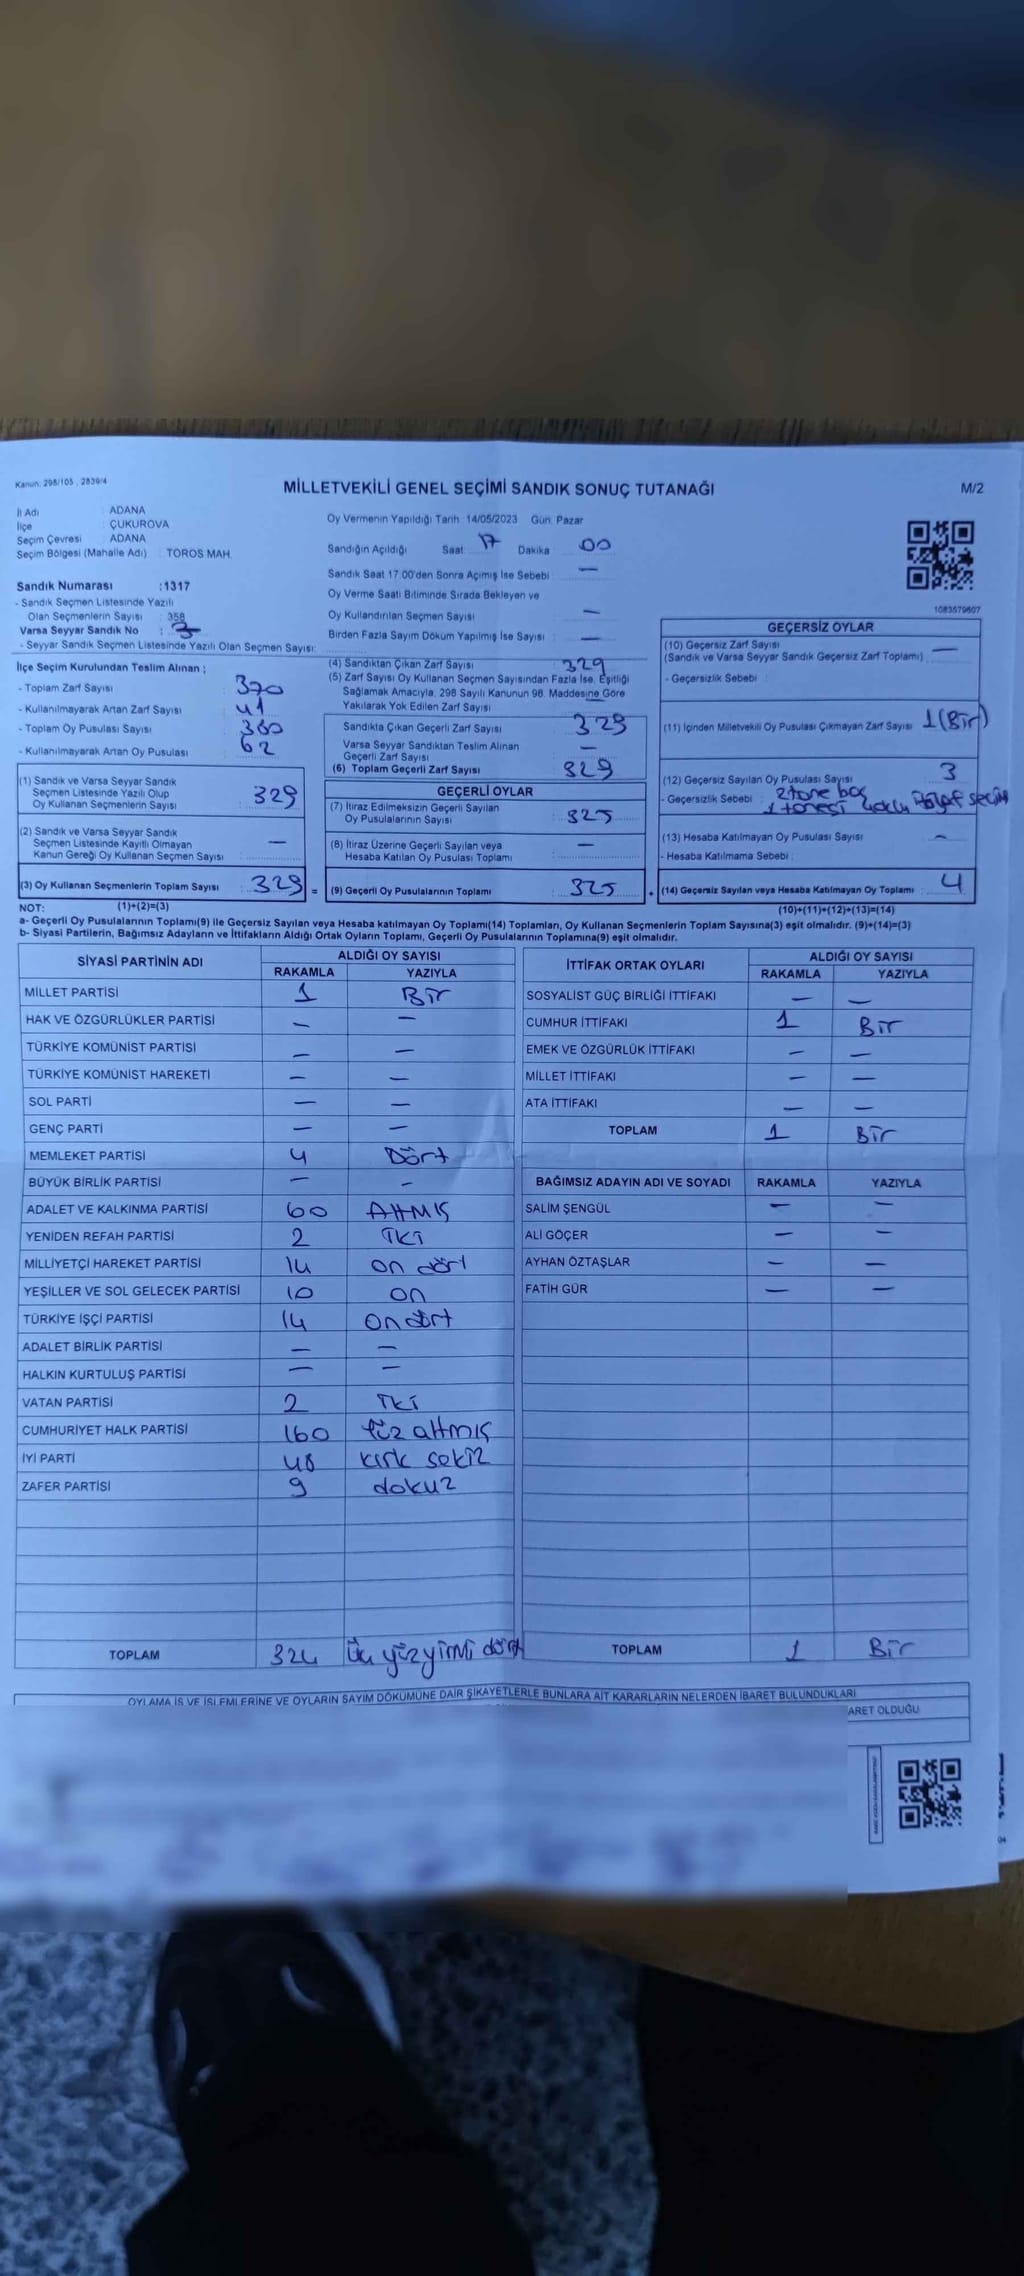 Kanun: 298/105 , 2839/4
MİLLETVEKİLİ GENEL SEÇİMİ SANDIK SONUÇ TUTANAĞI
M/2
İl Adı : ADANA
İlçe : ÇUKUROVA
Seçim Çevresi : ADANA
Seçim Bölgesi (Mahalle Adı) : TOROS MAH.
Sandık Numarası :1317
- Sandık Seçmen Listesinde Yazılı
Olan Seçmenlerin Sayısı : 358
Varsa Seyyar Sandık No :
- Seyyar Sandık Seçmen Listesinde Yazılı Olan Seçmen Sayısı:
Oy Vermenin Yapıldığı Tarih: 14/05/2023 Gün: Pazar
Sandığın Açıldığı Saat 17 Dakika 00
Sandık Saat 17:00'den Sonra Açımış İse Sebebi : —
Oy Verme Saati Bitiminde Sırada Bekleyen ve
Oy Kullandırılan Seçmen Sayısı : —
Birden Fazla Sayım Döküm Yapılmış İse Sayısı : —
1083579607
İlçe Seçim Kurulundan Teslim Alınan ;
- Toplam Zarf Sayısı : 370
- Kullanılmayarak Artan Zarf Sayısı : 41
- Toplam Oy Pusulası Sayısı : 360
- Kullanılmayarak Artan Oy Pusulası : 62
(1) Sandık ve Varsa Seyyar Sandık
Seçmen Listesinde Yazılı Olup
Oy Kullanan Seçmenlerin Sayısı : 329
(2) Sandık ve Varsa Seyyar Sandık
Seçmen Listesinde Kayıtlı Olmayan
Kanun Gereği Oy Kullanan Seçmen Sayısı : —
(3) Oy Kullanan Seçmenlerin Toplam Sayısı : 329 =
(1)+(2)=(3)
(4) Sandıktan Çıkan Zarf Sayısı : 329
(5) Zarf Sayısı Oy Kullanan Seçmen Sayısından Fazla İse, Eşitliği
Sağlamak Amacıyla, 298 Sayılı Kanunun 98. Maddesine Göre
Yakılarak Yok Edilen Zarf Sayısı : —
Sandıkta Çıkan Geçerli Zarf Sayısı : 329
Varsa Seyyar Sandıktan Teslim Alınan
Geçerli Zarf Sayısı : —
(6) Toplam Geçerli Zarf Sayısı : 329
GEÇERLİ OYLAR
(7) İtiraz Edilmeksizin Geçerli Sayılan
Oy Pusulalarının Sayısı : 325
(8) İtiraz Üzerine Geçerli Sayılan veya
Hesaba Katılan Oy Pusulası Toplamı : —
(9) Geçerli Oy Pusulalarının Toplamı : 325 +
GEÇERSİZ OYLAR
(10) Geçersiz Zarf Sayısı
(Sandık ve Varsa Seyyar Sandık Geçersiz Zarf Toplamı) : —
- Geçersizlik Sebebi :
(11) İçinden Milletvekili Oy Pusulası Çıkmayan Zarf Sayısı : 1(Bir)
(12) Geçersiz Sayılan Oy Pusulası Sayısı : 3
- Geçersizlik Sebebi : 2 tane boş
1 tanesi
(13) Hesaba Katılmayan Oy Pusulası Sayısı : —
- Hesaba Katılmama Sebebi :
(14) Geçersiz Sayılan veya Hesaba Katılmayan Oy Toplamı : 4
(10)+(11)+(12)+(13)=(14)
NOT:
a- Geçerli Oy Pusulalarının Toplamı(9) ile Geçersiz Sayılan veya Hesaba katılmayan Oy Toplamı(14) Toplamları, Oy Kullanan Seçmenlerin Toplam Sayısına(3) eşit olmalıdır. (9)+(14)=(3)
b- Siyasi Partilerin, Bağımsız Adayların ve İttifakların Aldığı Ortak Oyların Toplamı, Geçerli Oy Pusulalarının Toplamına(9) eşit olmalıdır.
SİYASİ PARTİNİN ADI
ALDIĞI OY SAYISI
RAKAMLA YAZIYLA
MİLLET PARTİSİ 1 Bir
HAK VE ÖZGÜRLÜKLER PARTİSİ — —
TÜRKİYE KOMÜNİST PARTİSİ — —
TÜRKİYE KOMÜNİST HAREKETİ — —
SOL PARTİ — —
GENÇ PARTİ — —
MEMLEKET PARTİSİ 4 Dört
BÜYÜK BİRLİK PARTİSİ — —
ADALET VE KALKINMA PARTİSİ 60 Altmış
YENİDEN REFAH PARTİSİ 2 İki
MİLLİYETÇİ HAREKET PARTİSİ 14 on dört
YEŞİLLER VE SOL GELECEK PARTİSİ 10 on
TÜRKİYE İŞÇİ PARTİSİ 14 on dört
ADALET BİRLİK PARTİSİ — —
HALKIN KURTULUŞ PARTİSİ — —
VATAN PARTİSİ 2 İki
CUMHURİYET HALK PARTİSİ 160 Yüz altmış
İYİ PARTİ 48 kırk sekiz
ZAFER PARTİSİ 9 dokuz
TOPLAM 324 Üç yüz yirmi dört
İTTİFAK ORTAK OYLARI
ALDIĞI OY SAYISI
RAKAMLA YAZIYLA
SOSYALİST GÜÇ BİRLİĞİ İTTİFAKI — —
CUMHUR İTTİFAKI 1 Bir
EMEK VE ÖZGÜRLÜK İTTİFAKI — —
MİLLET İTTİFAKI — —
ATA İTTİFAKI — —
TOPLAM 1 Bir
BAĞIMSIZ ADAYIN ADI VE SOYADI RAKAMLA YAZIYLA
SALİM ŞENGÜL — —
ALİ GÖÇER — —
AYHAN ÖZTAŞLAR — —
FATİH GÜR — —
TOPLAM 1 Bir
OYLAMA İŞ VE İŞLEMLERİNE VE OYLARIN SAYIM DÖKÜMÜNE DAİR ŞİKAYETLERLE BUNLARA AİT KARARLARIN NELERDEN İBARET BULUNDUKLARI
ARET OLDUĞU